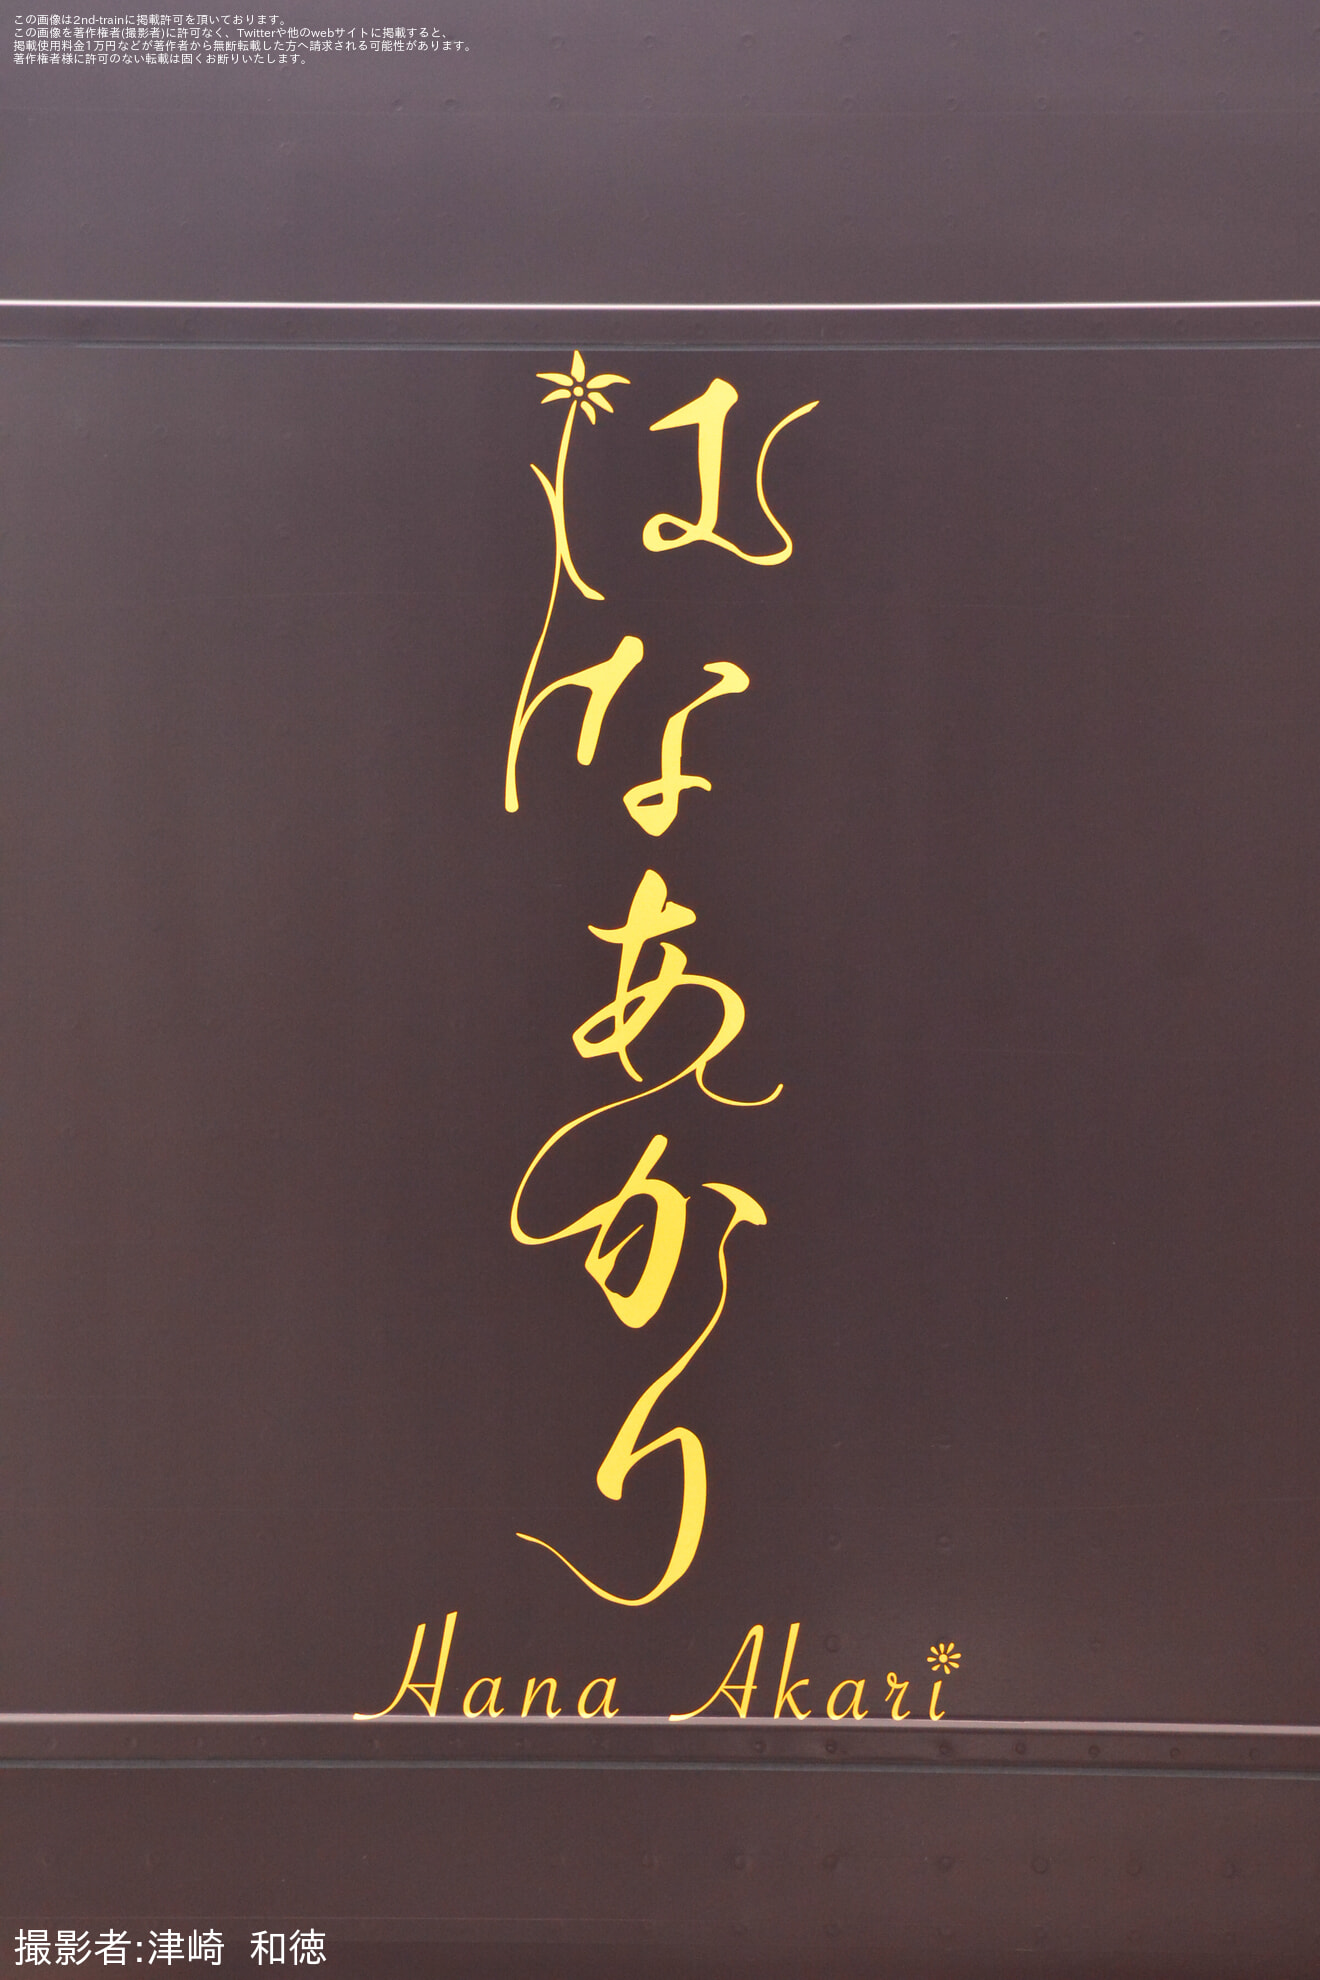 この画像は2nd-trainに掲載許可を頂いております。
この画像を著作権者(撮影者)に許可なく、Twitterや他のwebサイトに掲載すると、
掲載使用料金1万円などが著作者から無断転載した方へ請求される可能性があります。
著作権者様に許可のない転載は固くお断りいたします。
はなあかり
Hana Akari
撮影者:津崎 和徳